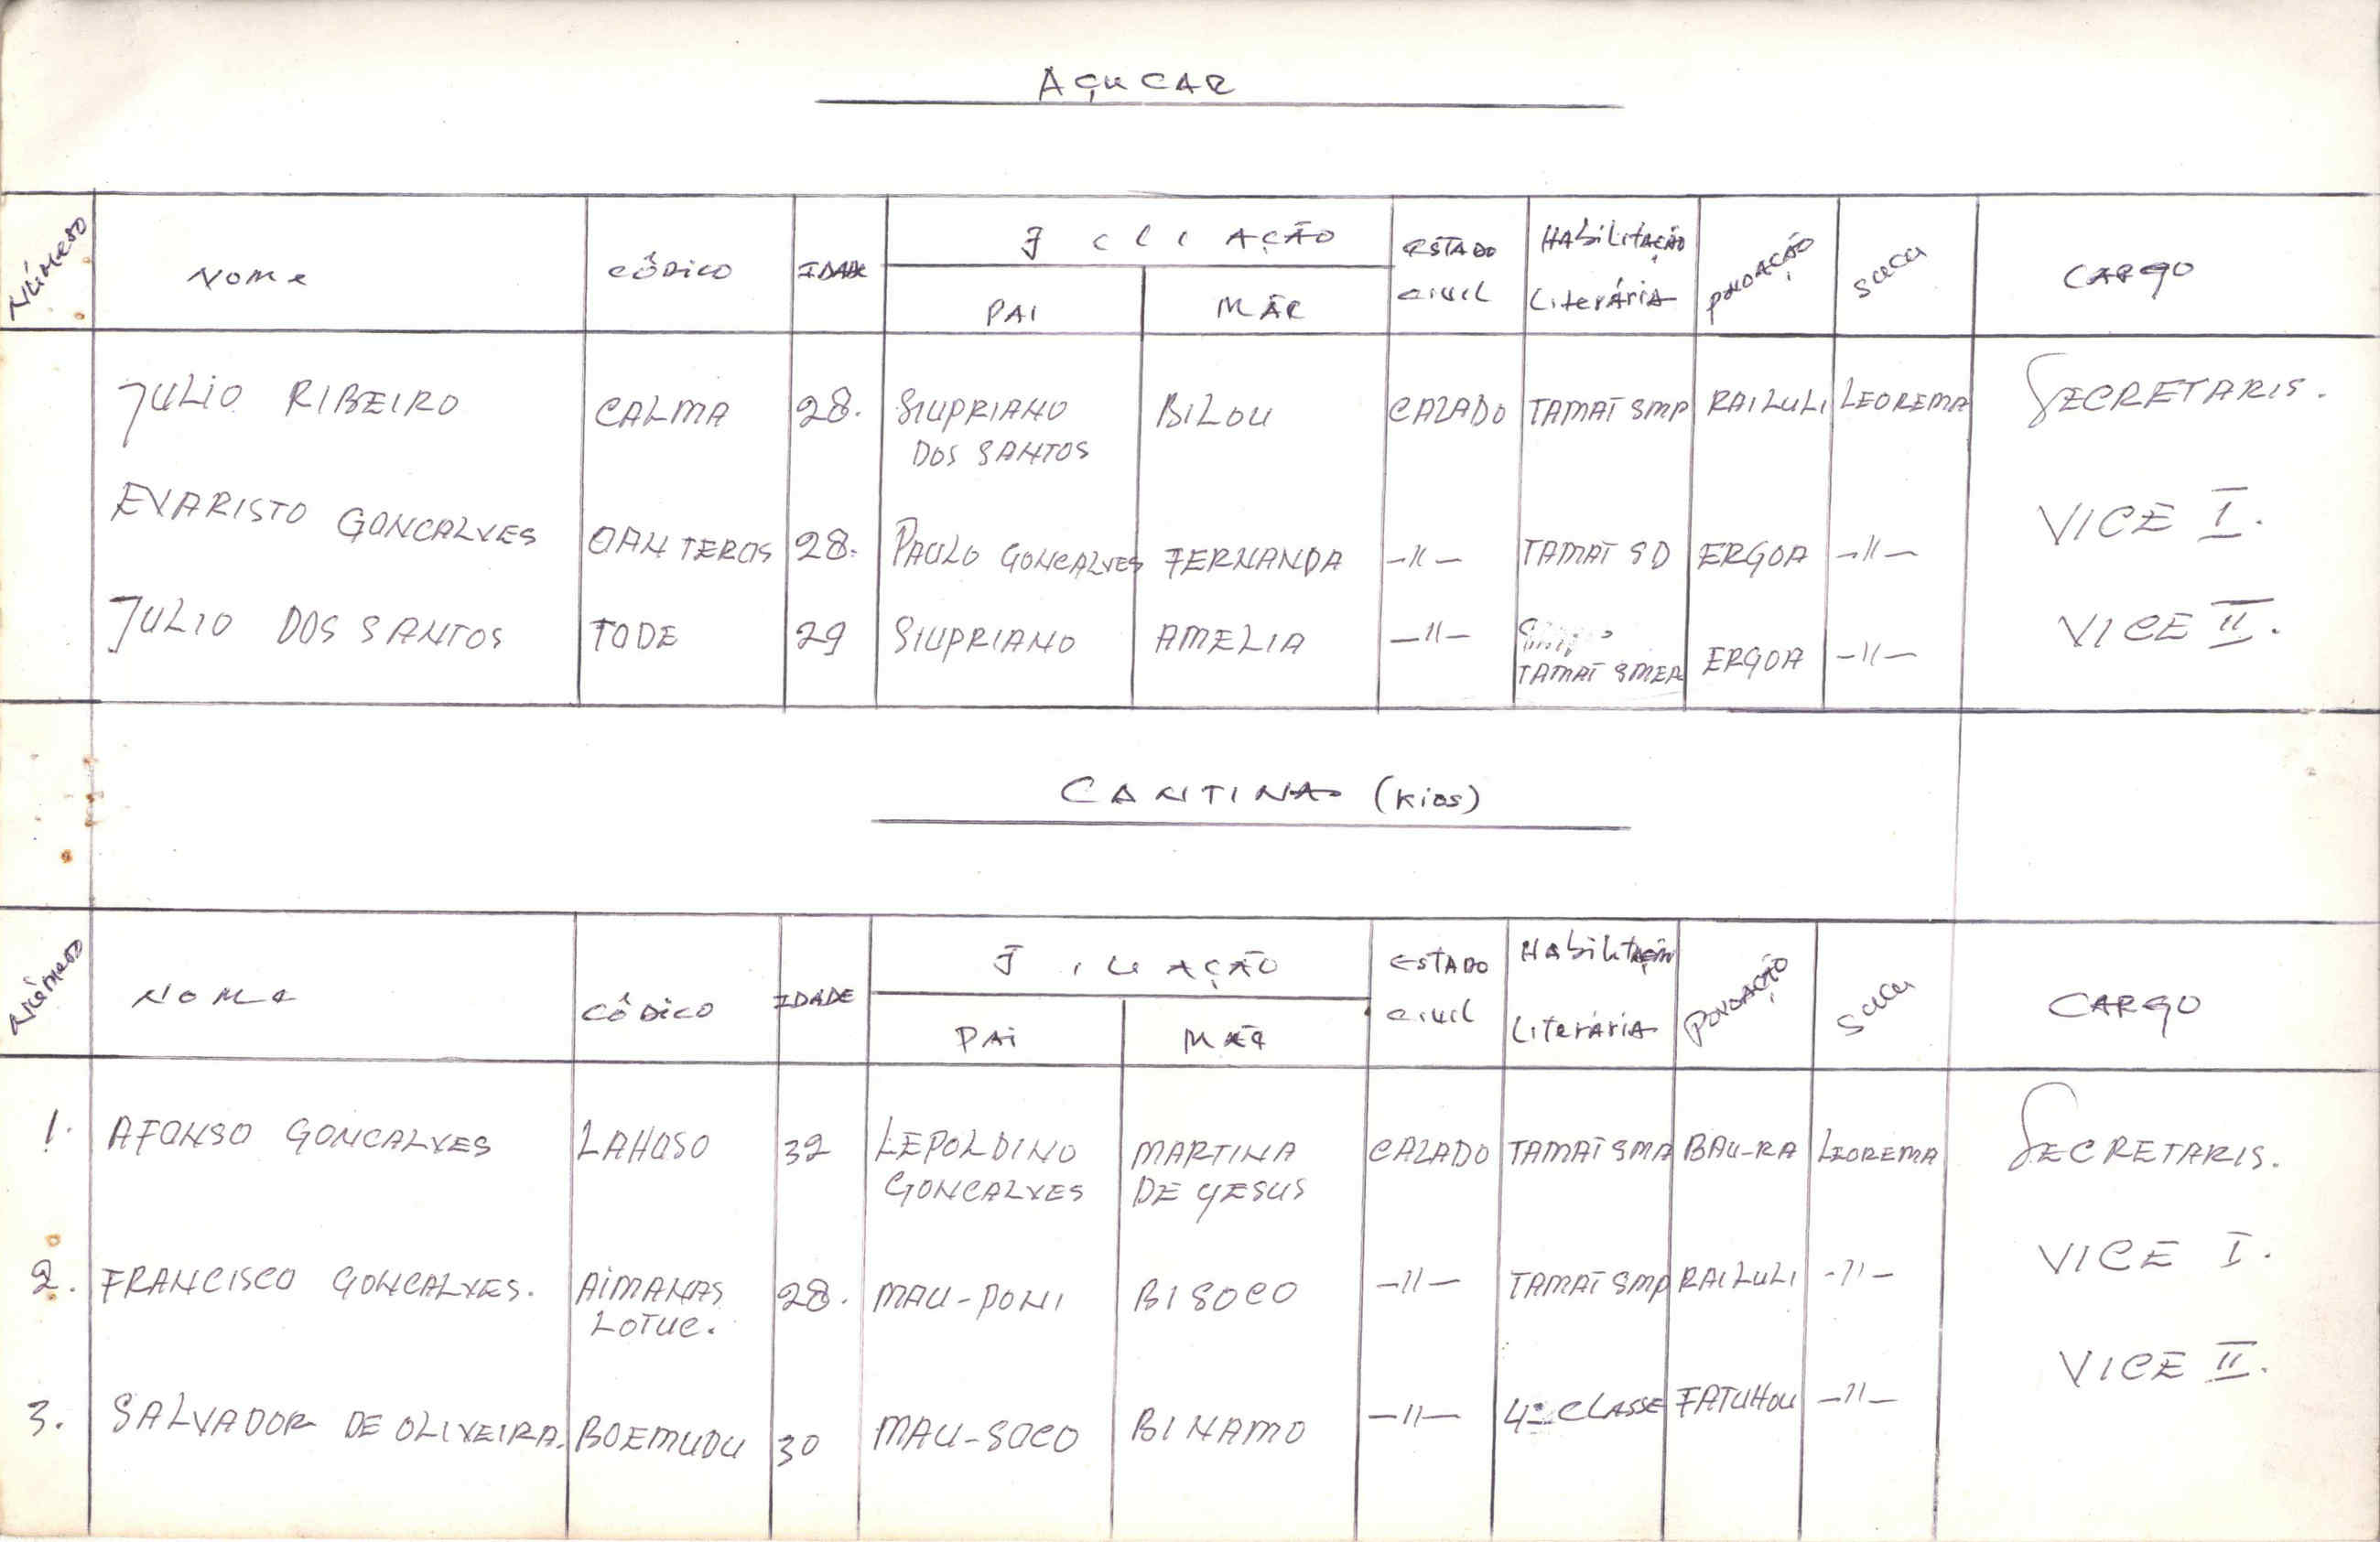 AÇUCAR
Número NOME CÔDICO IDADE FILIAÇÃO ESTADO civil Habilitação Literária POVOAÇÃO SUCU CARGO
PAI MÃE
JULIO RIBEIRO CALMA 28. SIUPRIANO BILOU CAZADO TAMAT SMP RAILULI LEOREMA SECRETARIS.
DOS SANTOS
EVARISTO GONCALVES OANTEROS 28. PAULO GONCALVES FERNANDA —11— TAMAT SD ERGOA —11— VICE I.
JULIO DOS SANTOS TODE 29 SIUPRIANO AMELIA —11— TAMAT SMEA ERGOA —11— VICE II.
CANTINA (kios)
Número NOME CÔDICO IDADE FILIAÇÃO ESTADO civil Habilitação Literária POVOAÇÃO SUCU CARGO
PAI MÃE
1. AFONSO GONCALVES LAHASO 32 LEPOLDINO MARTINA CAZADO TAMAT SMA BAU-RA LEOREMA SECRETARIS.
GONCALVES DE YESUS
2. FRANCISCO GONCALVES. AIMANAS 28. MAU-PONI BISOCO —11— TAMAT SMP RAILULI —11— VICE I.
LOTUC.
3. SALVADOR DE OLIVEIRA. BOEMUDU 30 MAU-SOCO BINAMO —11— 4ª CLASSE FATUHOU —11— VICE II.